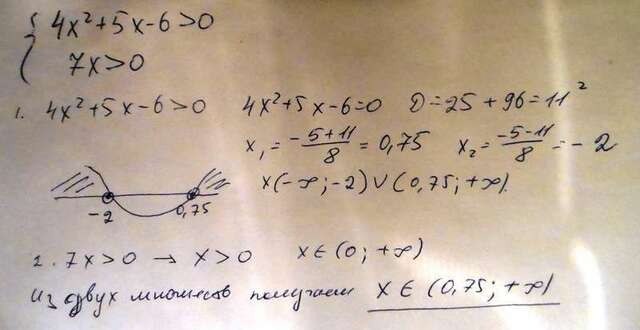 { 4x²+5x-6>0
7x>0
1. 4x²+5x-6>0 4x²+5x-6=0 D=25+96=11²
x₁=(-5+11)/8=0,75 x₂=(-5-11)/8=-2
-2 0,75
x(-∞;-2)∪(0,75;+∞)
2. 7x>0 → x>0 x∈(0;+∞)
Из двух множеств получаем x∈(0,75;+∞)